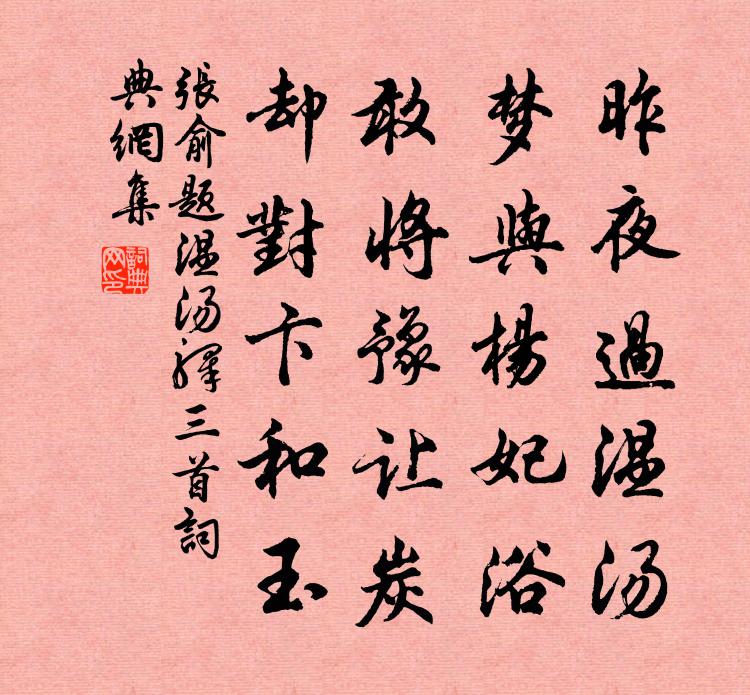 昨夜過温汤
梦與楊妃浴
敢將豫让炭
却對卞和玉
張俞题温汤驛三首詞
典網集
詞典网印